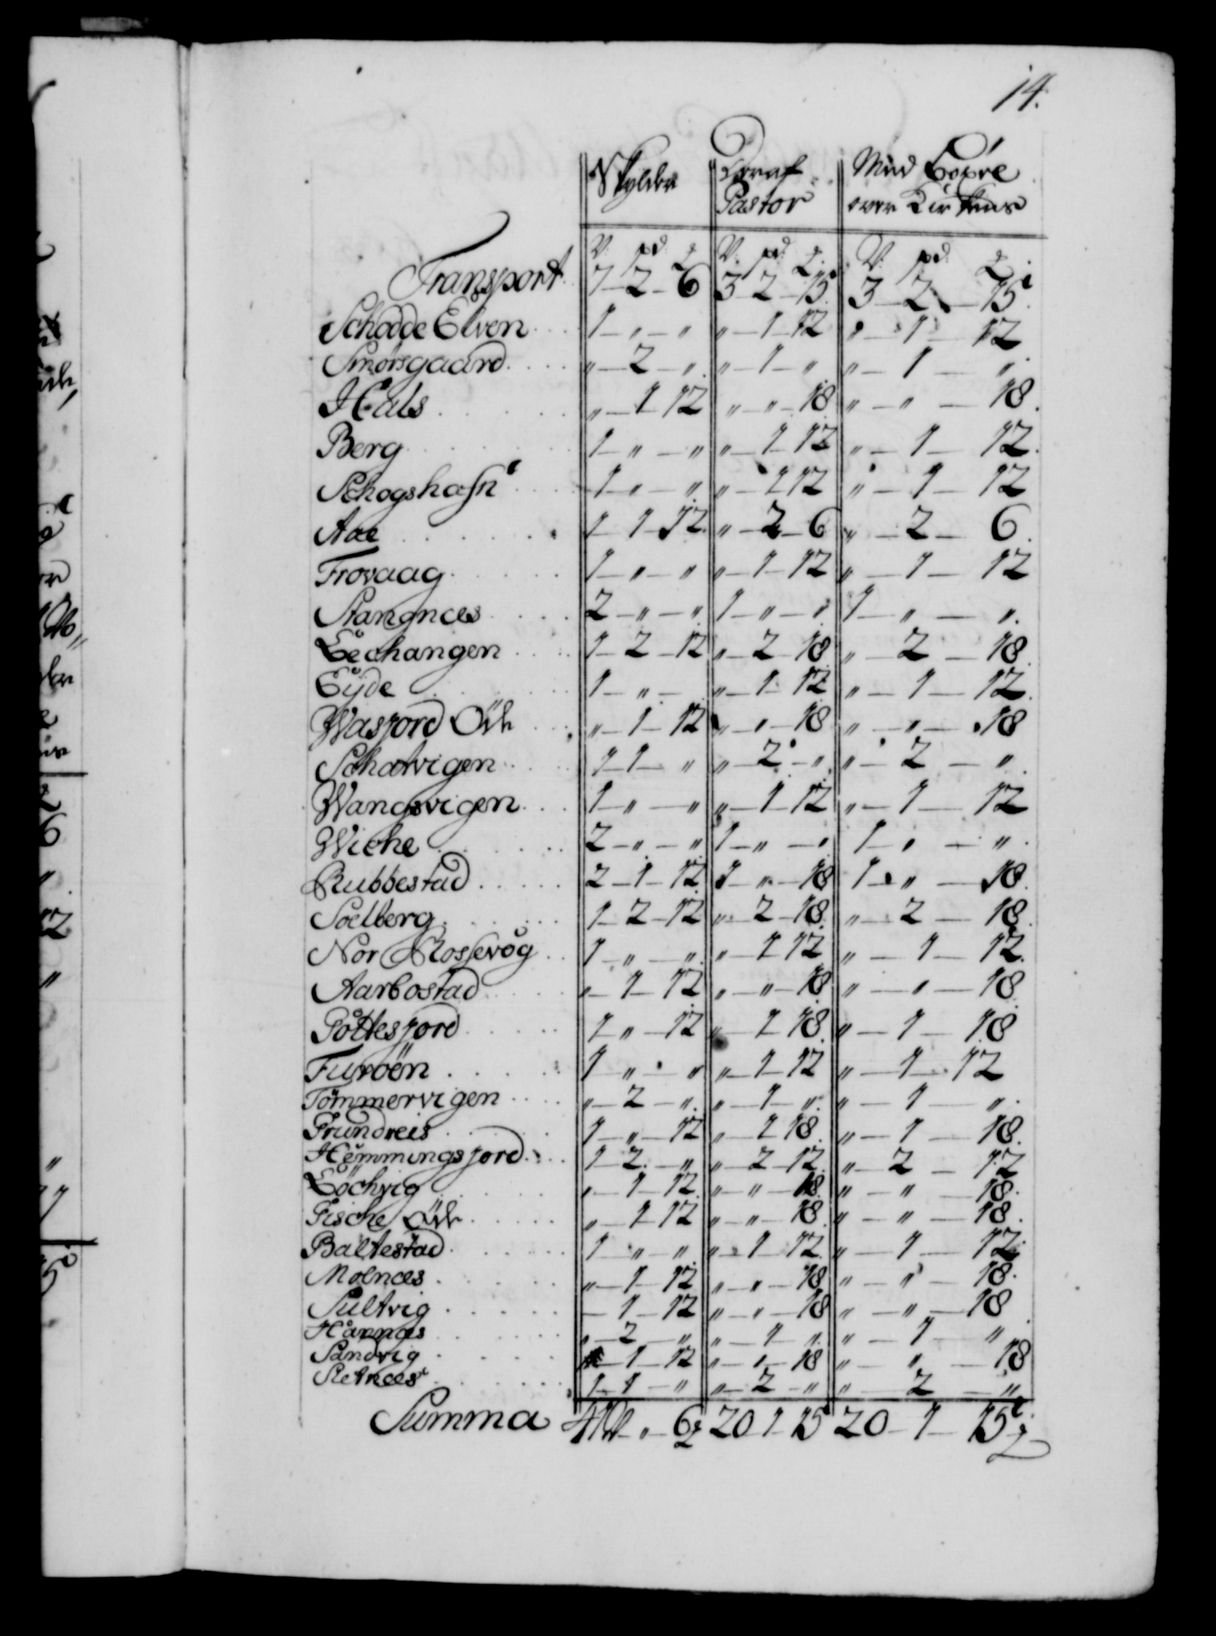 14.
Skylder | Deraf Pastor | Med Böxre over Kirkens
V. pd. L. | V. pd. L. | V. pd. L.
Transport 7 - 2 - 6 | 3 - 2 - 15 | 3 - 2 - 15
Schodde Elven 1 - „ - „ | „ - 1 - 12 | „ - 1 - 12
Smörsgaard „ - 2 - „ | „ - 1 - „ | „ - 1 - „
Hals „ - 1 - 12 | „ - „ - 18 | „ - „ - 18.
Berg 1 - „ - „ | „ - 1 - 12 | „ - 1 - 12.
Schogshafn 1 - „ - „ | „ - 1 - 12 | „ - 1 - 12
Aae 1 - 1 - 12 | „ - 2 - 6 | „ - 2 - 6.
Frovaag 1 - „ - „ | „ - 1 - 12 | „ - 1 - 12
Stangnæs 2 - „ - „ | 1 - „ - „ | 1 - „ - „.
Lechangen 1 - 2 - 12 | „ - 2 - 18 | „ - 2 - 18
Eyde 1 - „ - | „ - 1 - 12 | „ - 1 - 12.
Wasjord Öde „ - 1 - 12 | „ - „ - 18 | „ - „ - 18
Schatvigen 1 - 1 - „ | „ - 2 - „ | „ - 2 - „.
Wangsvigen 1 - „ - „ | „ - 1 - 12 | „ - 1 - 12
Wiche 2 - „ - „ | 1 - „ - „ | 1 - „ - „.
Rubbestad 2 - 1 - 12 | 1 - „ - 18 | 1 - „ - 18.
Soelberg 1 - 2 - 12 | „ - 2 - 18 | „ - 2 - 18
Nor Rossevog 1 - „ - „ | „ - 1 - 12 | „ - 1 - 12.
Aarbostad „ - 1 - 12 | „ - „ - 18 | „ - „ - 18
Pottesjord 1 - „ - 12 | „ - 1 - 18 | „ - 1 - 18
Furöen 1 - „ - „ | „ - 1 - 12 | „ - 1 - 12
Tömmervigen „ - 2 - „ | „ - 1 - „ | „ - 1 - „
Grundreis 1 - „ - 12 | „ - 1 - 18 | „ - 1 - 18.
Hemmingsjord 1 - 2 - „ | „ - 2 - 12 | „ - 2 - 12
Löchvig „ - 1 - 12 | „ - „ - 18 | „ - „ - 18.
Fische Öde „ - 1 - 12 | „ - „ - 18 | „ - „ - 18.
Baltestad 1 - „ - „ | „ - 1 - 12 | „ - 1 - 12
Molnæs „ - 1 - 12 | „ - „ - 18 | „ - „ - 18.
Sultvig - 1 - 12 | „ - „ - 18 | „ - „ - 18
„ - 2 - „ | „ - 1 - „ | „ - 1 - „
Sandvig 1 - 12 | „ - „ - 18 | „ - „ - 18
Sletnæs 1 - 1 - „ | „ - 2 - „ | „ - 2 - „
Summa 41 W - „ - 6 | 20 - 1 - 15 | 20 - 1 - 15